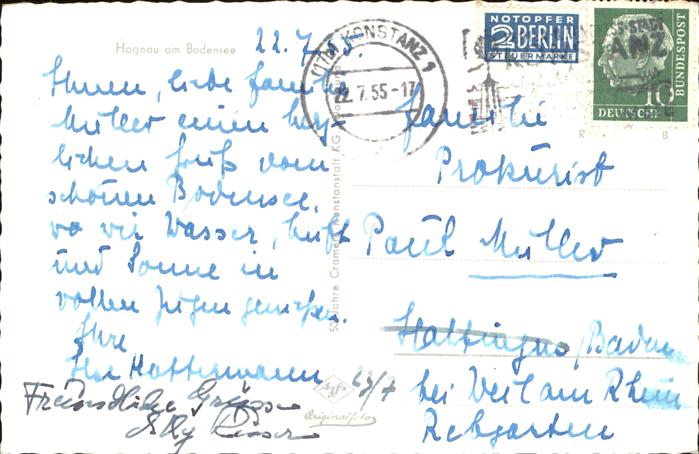 Hagnau am Bodensee
22.7.55.
Ihnen, liebe Familie
Müller einen herz-
lichen Gruß vom
schönen Bodensee,
wo wir Wasser, Luft
und Sonne in
vollen Zügen genießen.
Ihre
Hattermann
Freundliche Grüsse
Elly
KONSTANZ 1
22.7.55-17
NOTOPFER
2 BERLIN
STEUERMARKE
DEUTSCHE
BUNDESPOST
10
Familie
Prokurist
Paul Müller
Haltingen/Baden
bei Weil am Rhein
Rebgarten
23/7
50 Jahre Cramers Kunstanstalt KG
Agfa
Originalfoto